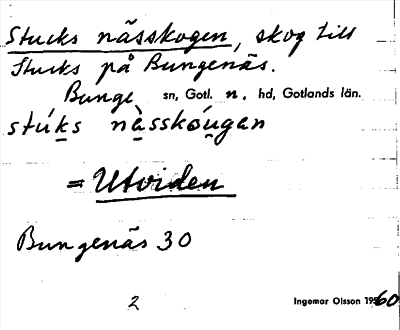 Stucks nässkogen, skog till
Stucks på Bungenäs.
Bunge sn, Gotl. n. hd, Gotlands län.
stúks nàsskóugan
= Utviden
Bungenäs 30
2
Ingemar Olsson 1960